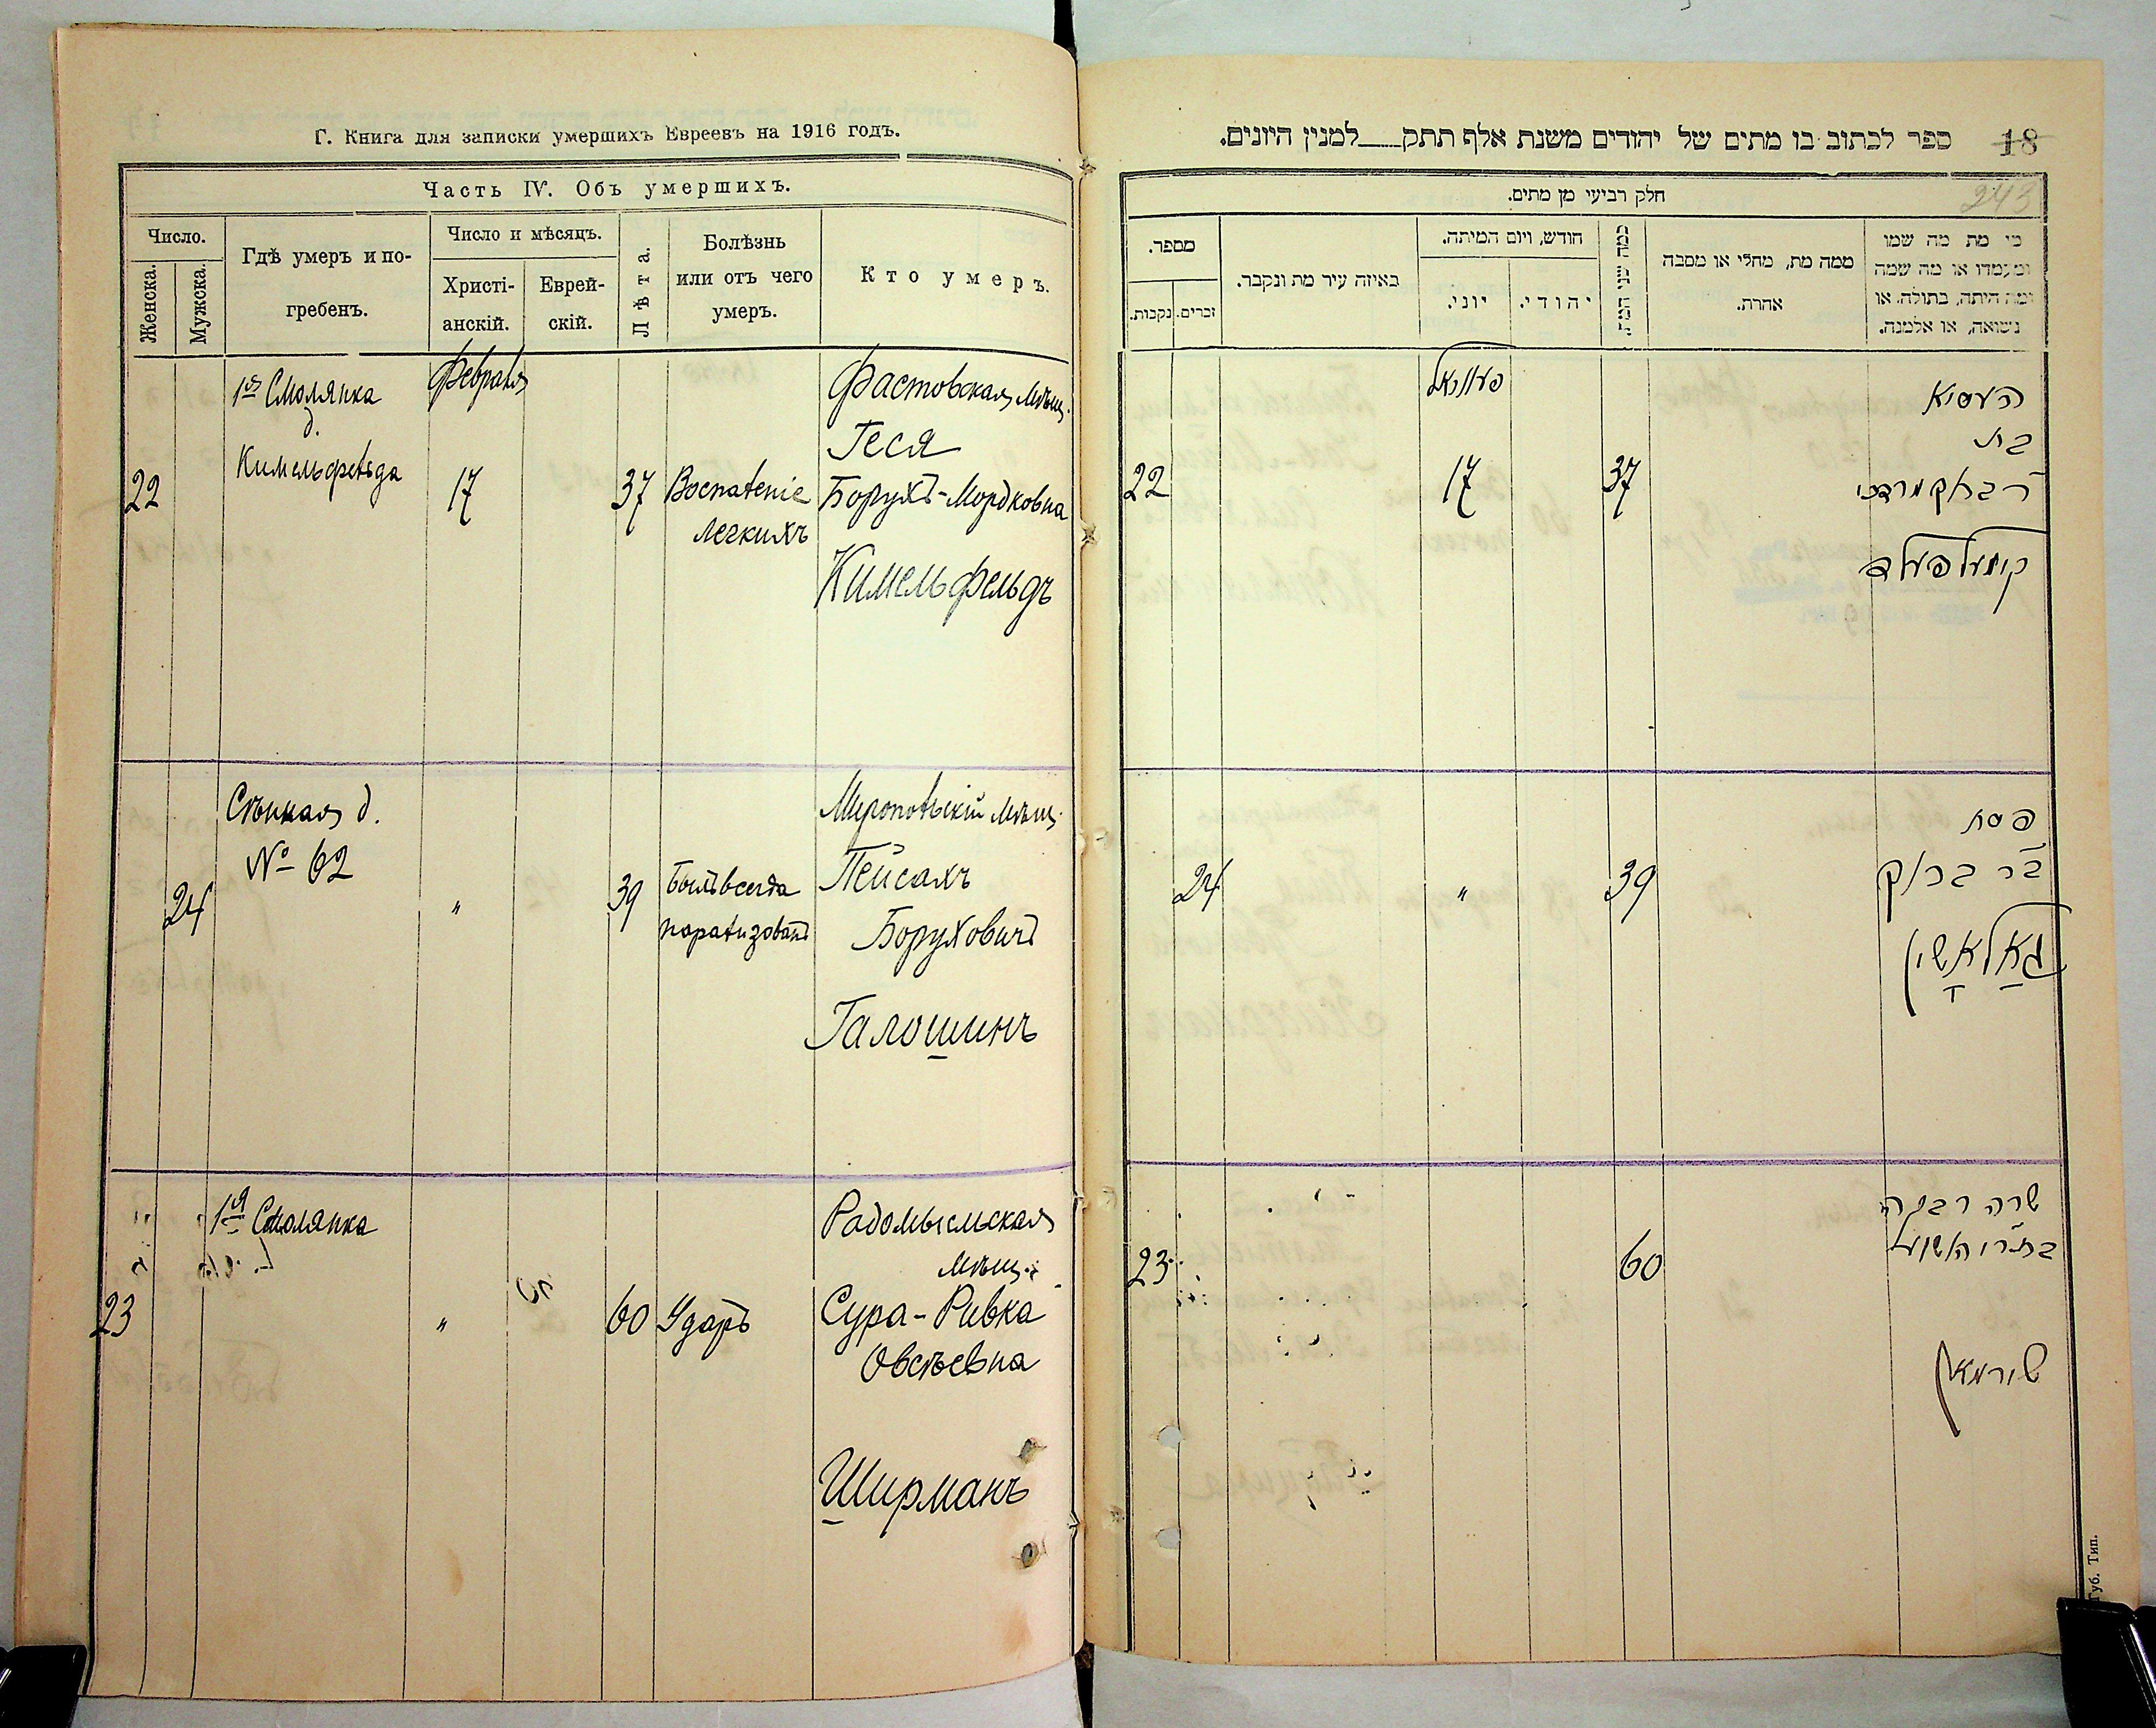 Г. Книга для записки умершихъ Евреевъ на 1916 годъ.
Часть IV. Объ умершихъ.
Число.
Женска.
Мужска.
Гдѣ умеръ и по-
гребенъ.
Число и мѣсяцъ.
Христі-
анскій.
Еврей-
скій.
Лѣта.
Болѣзнь
или отъ чего
умеръ.
Кто умеръ.
22
1ая Смолянка
д.
Кимельфельда
Февраля
17
37
Воспаленіе
легкихъ
Фастовская мѣщ.
Геся
Борухъ-Мордковна
Кимельфельдъ
24
Сѣнная д.
№ 62
"
39
Былъ всегда
парализованъ
Миропольскій мѣщ.
Пейсахъ
Боруховичъ
Галошинъ
23
1я Смолянка
"
60
Ударъ
Радомысльская
мѣщ.
Сура-Ривка
Овсѣевна
Ширманъ
18
ספר לכתוב בו מתים של יהודים משנת אלף תתק___למנין היונים.
243
חלק רביעי מן מתים.
מספר.
זכרים.
נקבות.
באיזה עיר מת ונקבר.
חודש, ויום המיתה.
יוני.
יהודי.
כמה שני
ממה מת, מחלי או מסבה
אחרת.
מי מת מה שמו
ומעמדו או מה שמה
ומה היתה, בתולה או
נשואה, או אלמנה.
22
17
37
העסיא
בת
ר' ברוך מרדכי
קימעלפעלד
24
"
39
פסח
בר ברוך
גאלאשין
23
60
שרה רבקה
שירמאן
Губ. Тип.